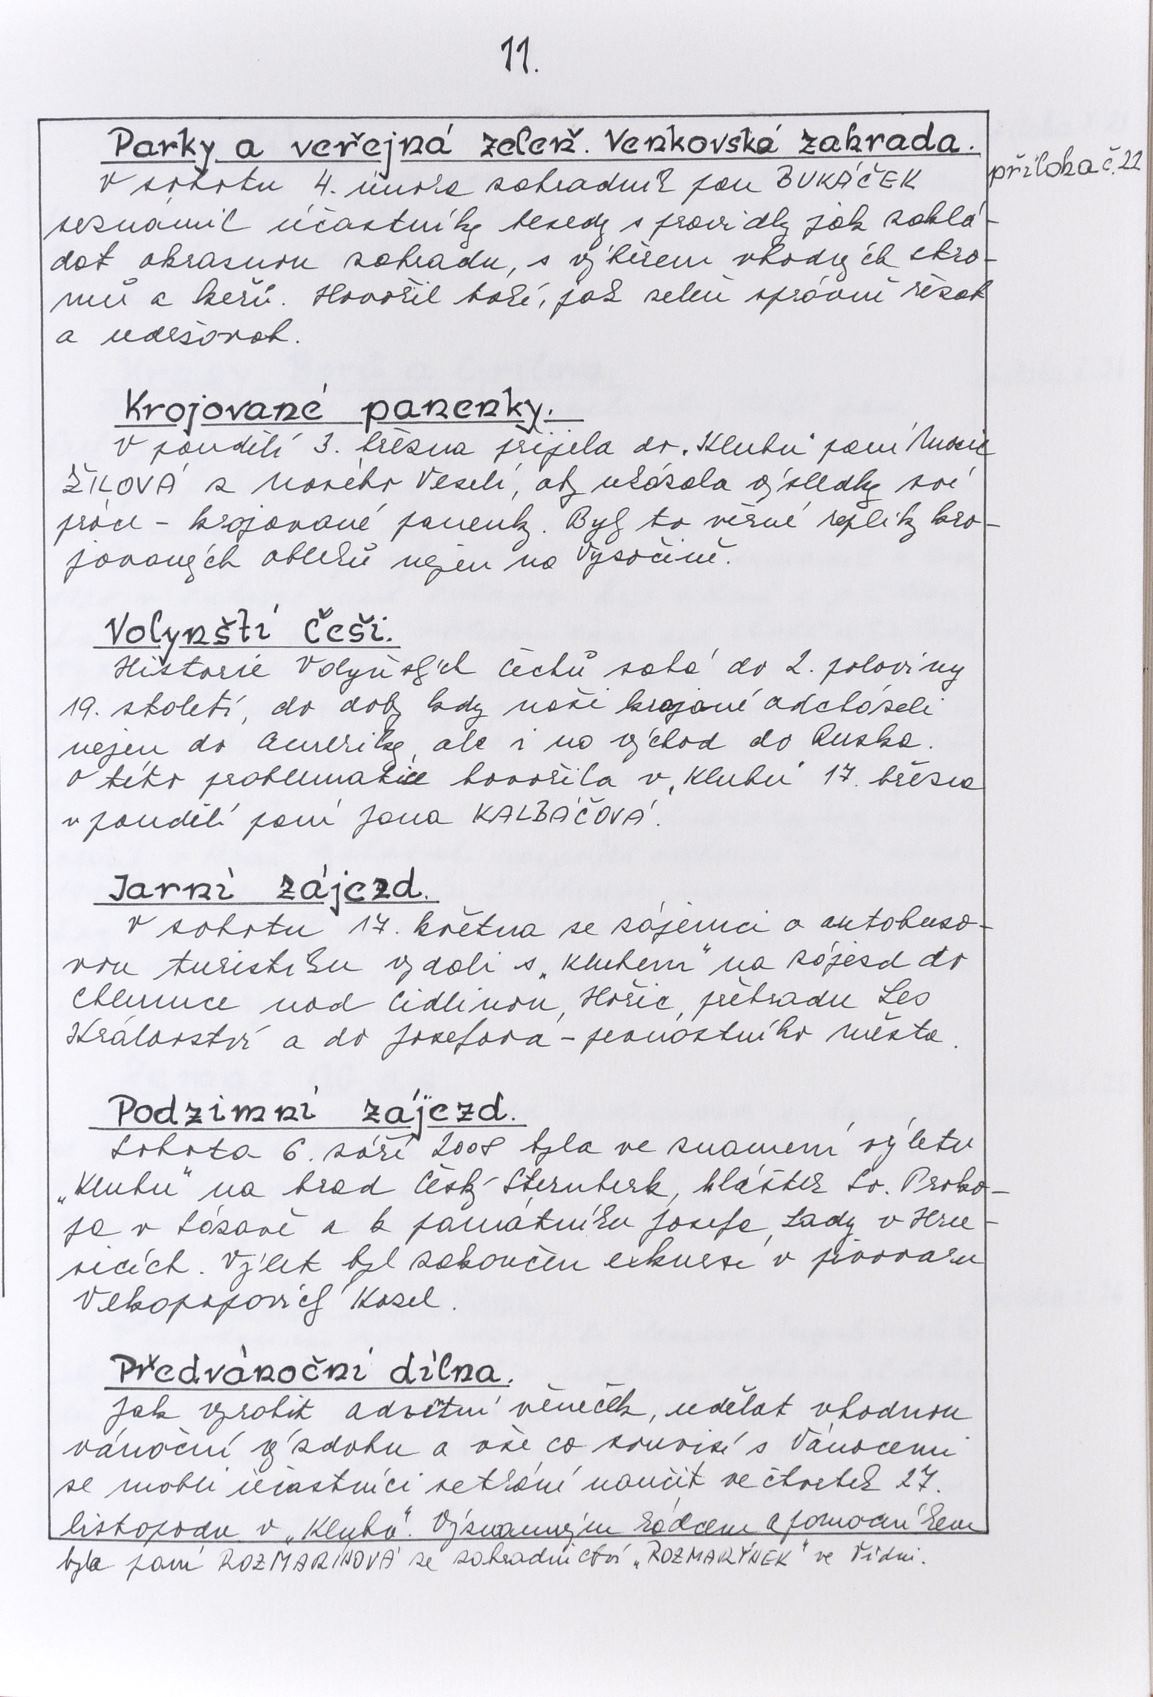 11.
Parky a veřejná zeleň. Venkovská zahrada.
příloha č. 22
V sobotu 4. února zahradník pan BUKÁČEK
seznámil účastníky besedy s pravidly jak zaklá-
dat okrasnou zahradu, s výběrem vhodných stro-
mů a keřů. Hovořil také, jak zeleň správně řezat
a udržovat.
Krojované panenky.
V pondělí 3. března přijela do „Klubu" paní Marie
ŽILOVÁ z Nového Veselí, aby ukázala výsledky své
práce - krojované panenky. Byly to věrné repliky kro-
jovaných obleků nejen na Vysočině.
Volynští Češi.
Historie Volyňských Čechů sahá do 2. poloviny
19. století, do doby kdy naši krajané odcházeli
nejen do Ameriky, ale i na východ do Ruska.
O této problematice hovořila v „Klubu" 17. března
v pondělí paní Jana KALBÁČOVÁ.
Jarní zájezd.
V sobotu 17. května se zájemci o autobuso-
vou turistiku vydali s „Klubem" na zájezd do
Chlumce nad Cidlinou, Hořic, přehradu Les
Království a do Josefova - pevnostního města.
Podzimní zájezd.
Sobota 6. září 2008 byla ve znamení výletu
„Klubu" na hrad Český Šternberk, klášter Sv. Proko-
pa v Sázavě a k památníku Josefa Lady v Hru-
sicích. Výlet byl zakončen exkurzí v pivovaru
Velkopopovický Kozel.
Předvánoční dílna.
Jak vyrobit adventní věneček, udělat vhodnou
vánoční výzdobu a vše co souvisí s Vánocemi
se mohli účastníci setkání naučit ve čtvrtek 27.
listopadu v „Klubu". Významným rádcem a pomocníkem
byla paní ROZMARINOVÁ ze zahradnictví „ROZMARÝNEK" ve Vídni.